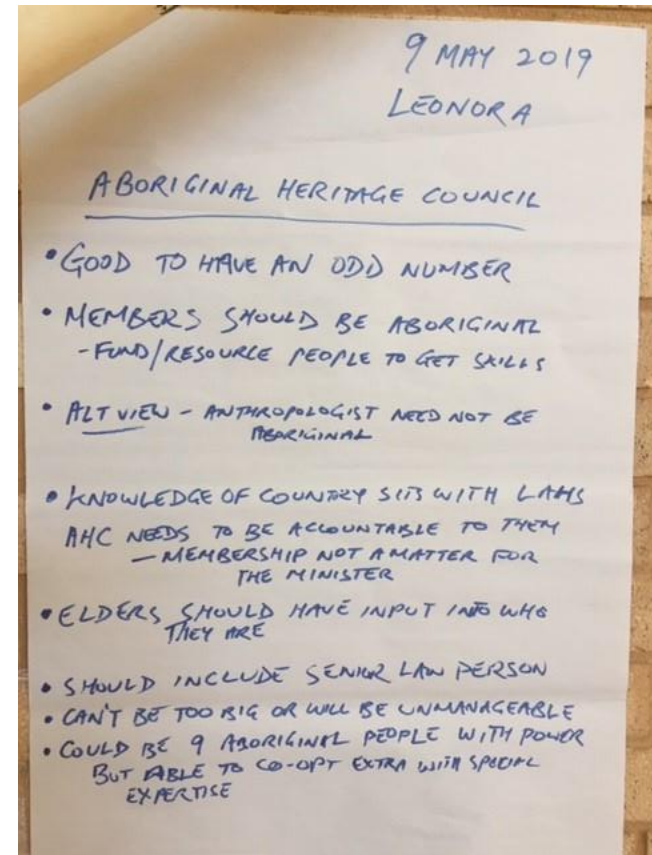 9 MAY 2019
LEONORA
ABORIGINAL HERITAGE COUNCIL
• GOOD TO HAVE AN ODD NUMBER
• MEMBERS SHOULD BE ABORIGINAL
- FUND/RESOURCE PEOPLE TO GET SKILLS
• ALT VIEW - ANTHROPOLOGIST NEED NOT BE
ABORIGINAL
• KNOWLEDGE OF COUNTRY SITS WITH LAHS
AHC NEEDS TO BE ACCOUNTABLE TO THEM
- MEMBERSHIP NOT A MATTER FOR
THE MINISTER
• ELDERS SHOULD HAVE INPUT INTO WHO
THEY ARE
• SHOULD INCLUDE SENIOR LAW PERSON
• CAN'T BE TOO BIG OR WILL BE UNMANAGEABLE
• COULD BE 9 ABORIGINAL PEOPLE WITH POWER
BUT ABLE TO CO-OPT EXTRA WITH SPECIAL
EXPERTISE